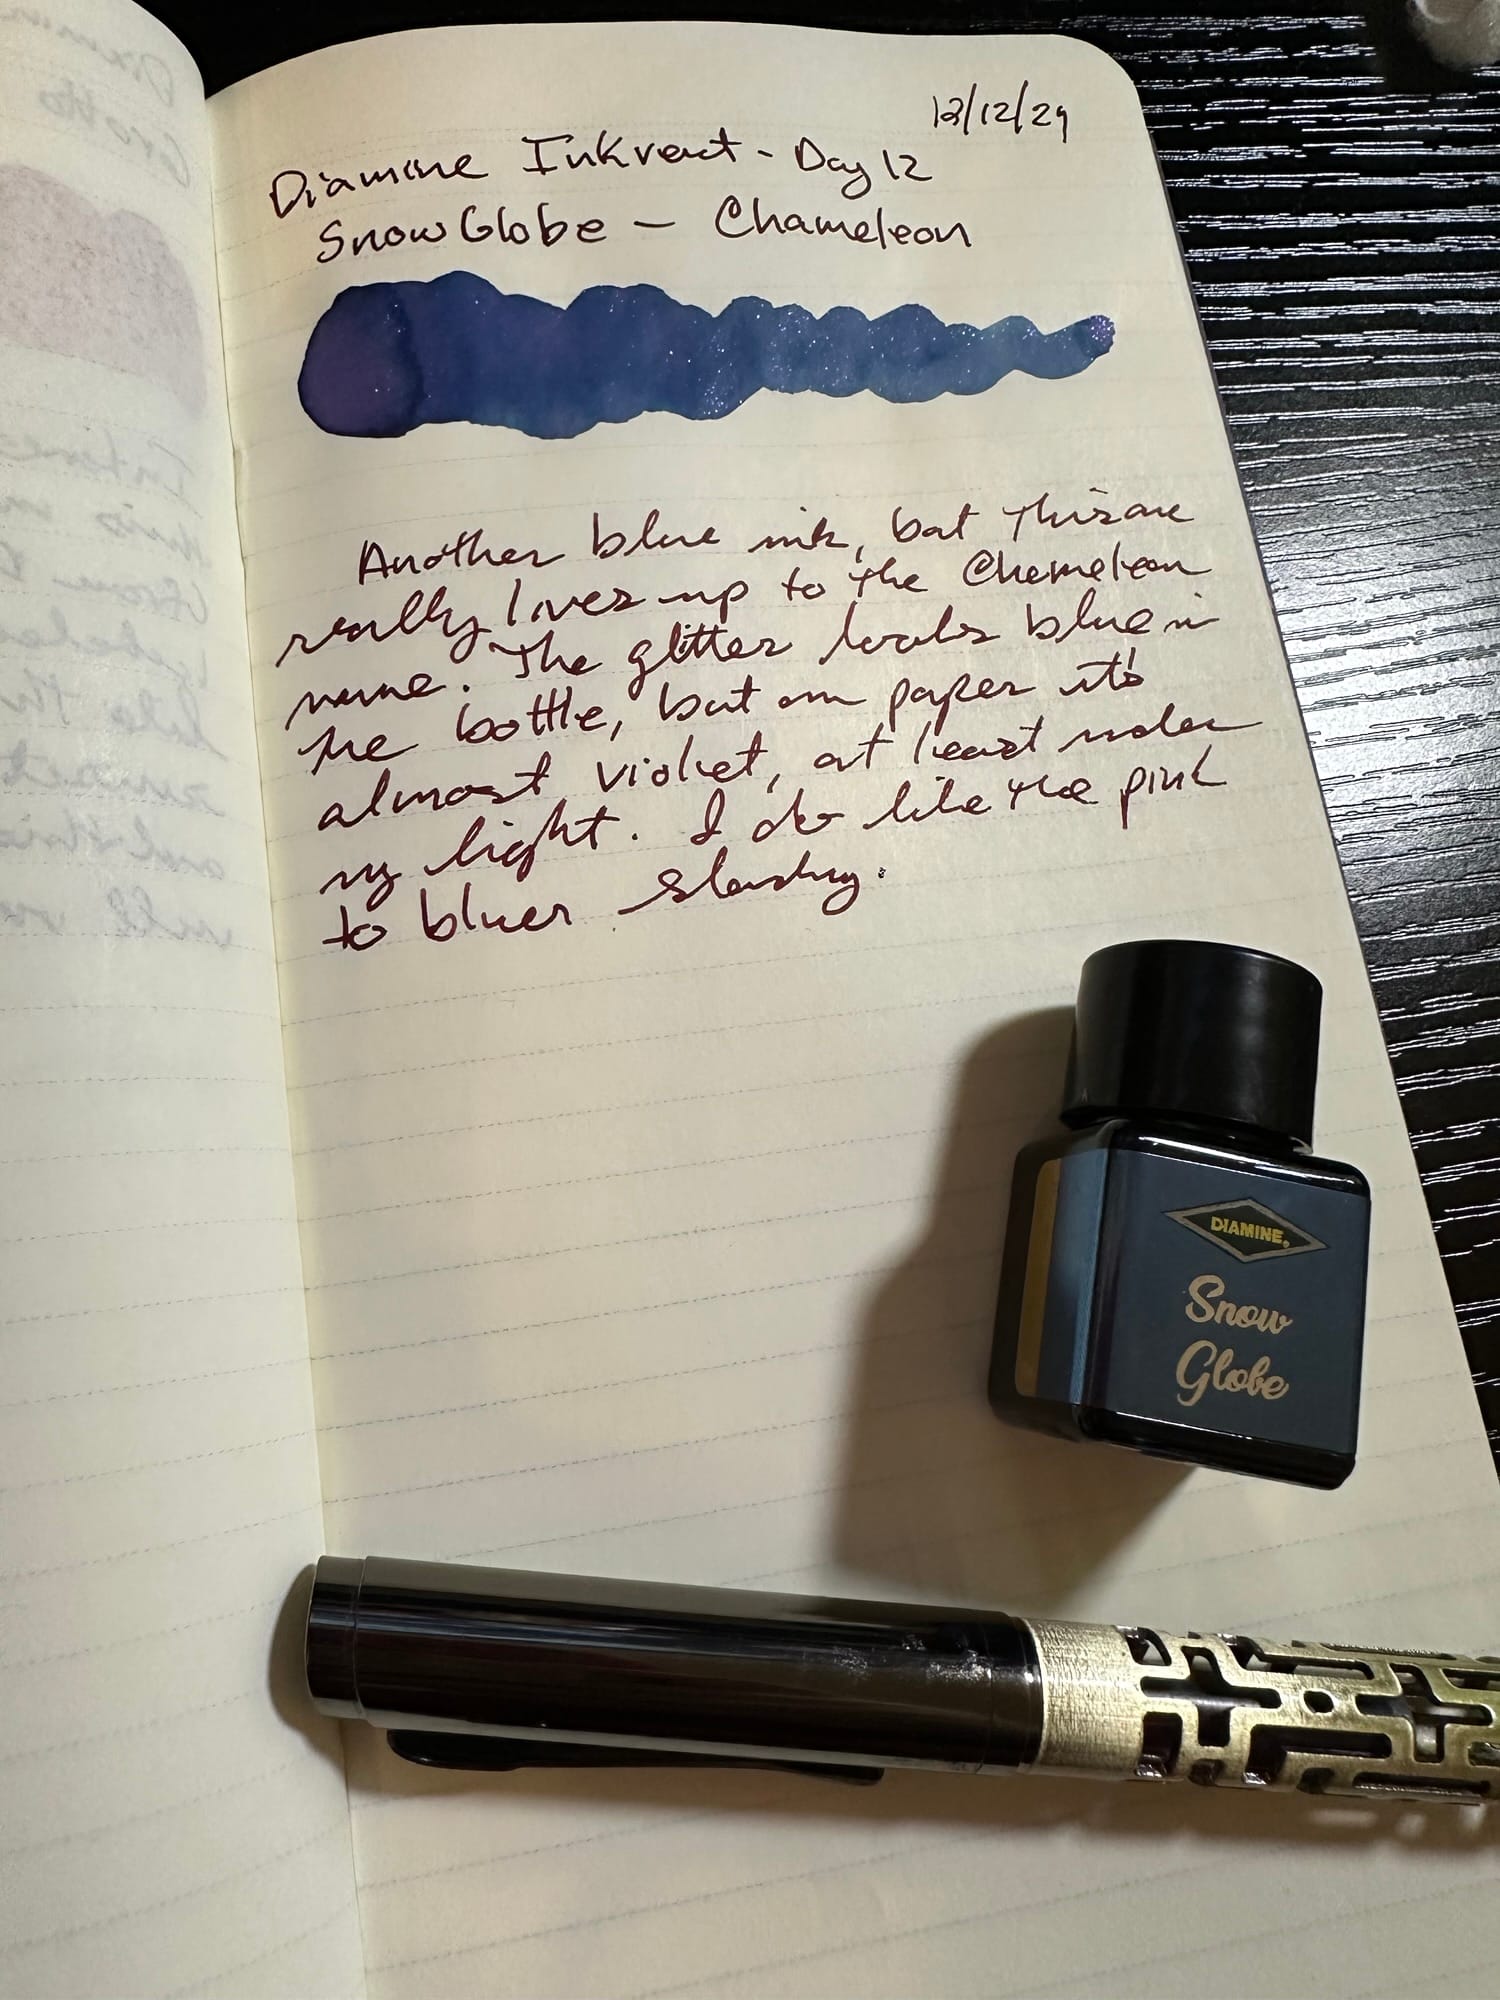 12/12/24
Diamine Inkvent - Day 12
Snow Globe - Chameleon
Another blue ink, but this one
really lives up to the Chameleon
name. The glitter looks blue in
the bottle, but on paper it's
almost violet, at least under
my light. I do like the pink
to blue shading.
DIAMINE
Snow
Globe